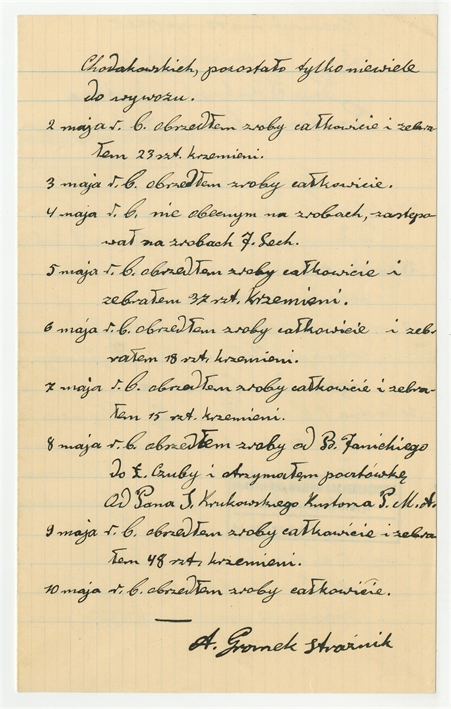 Chodakowskich, pozostało tylko niewiele
do wywozu.
2 maja r. b. obszedłem zroby całkowicie i zebra-
łem 23 szt. krzemieni.
3 maja r. b. obszedłem zroby całkowicie.
4 maja r. b. nie obecnym na zrobach, zastępo
wał na zrobach J. Lech.
5 maja r. b. obszedłem zroby całkowicie i
zebrałem 37 szt. krzemieni.
6 maja r. b. obszedłem zroby całkowicie i zeb-
rałem 18 szt. krzemieni.
7 maja r. b. obszedłem zroby całkowicie i zebra-
łem 15 szt. krzemieni.
8 maja r. b. obszedłem zroby od B. Janickiego
do Ł. Czuby i otrzymałem pocztówkę
Od Pana S. Krukowskiego Kustosza P. M. A.
9 maja r. b. obszedłem zroby całkowicie i zebra
łem 48 szt. krzemieni.
10 maja r. b. obszedłem zroby całkowicie.
A. Gromek strażnik